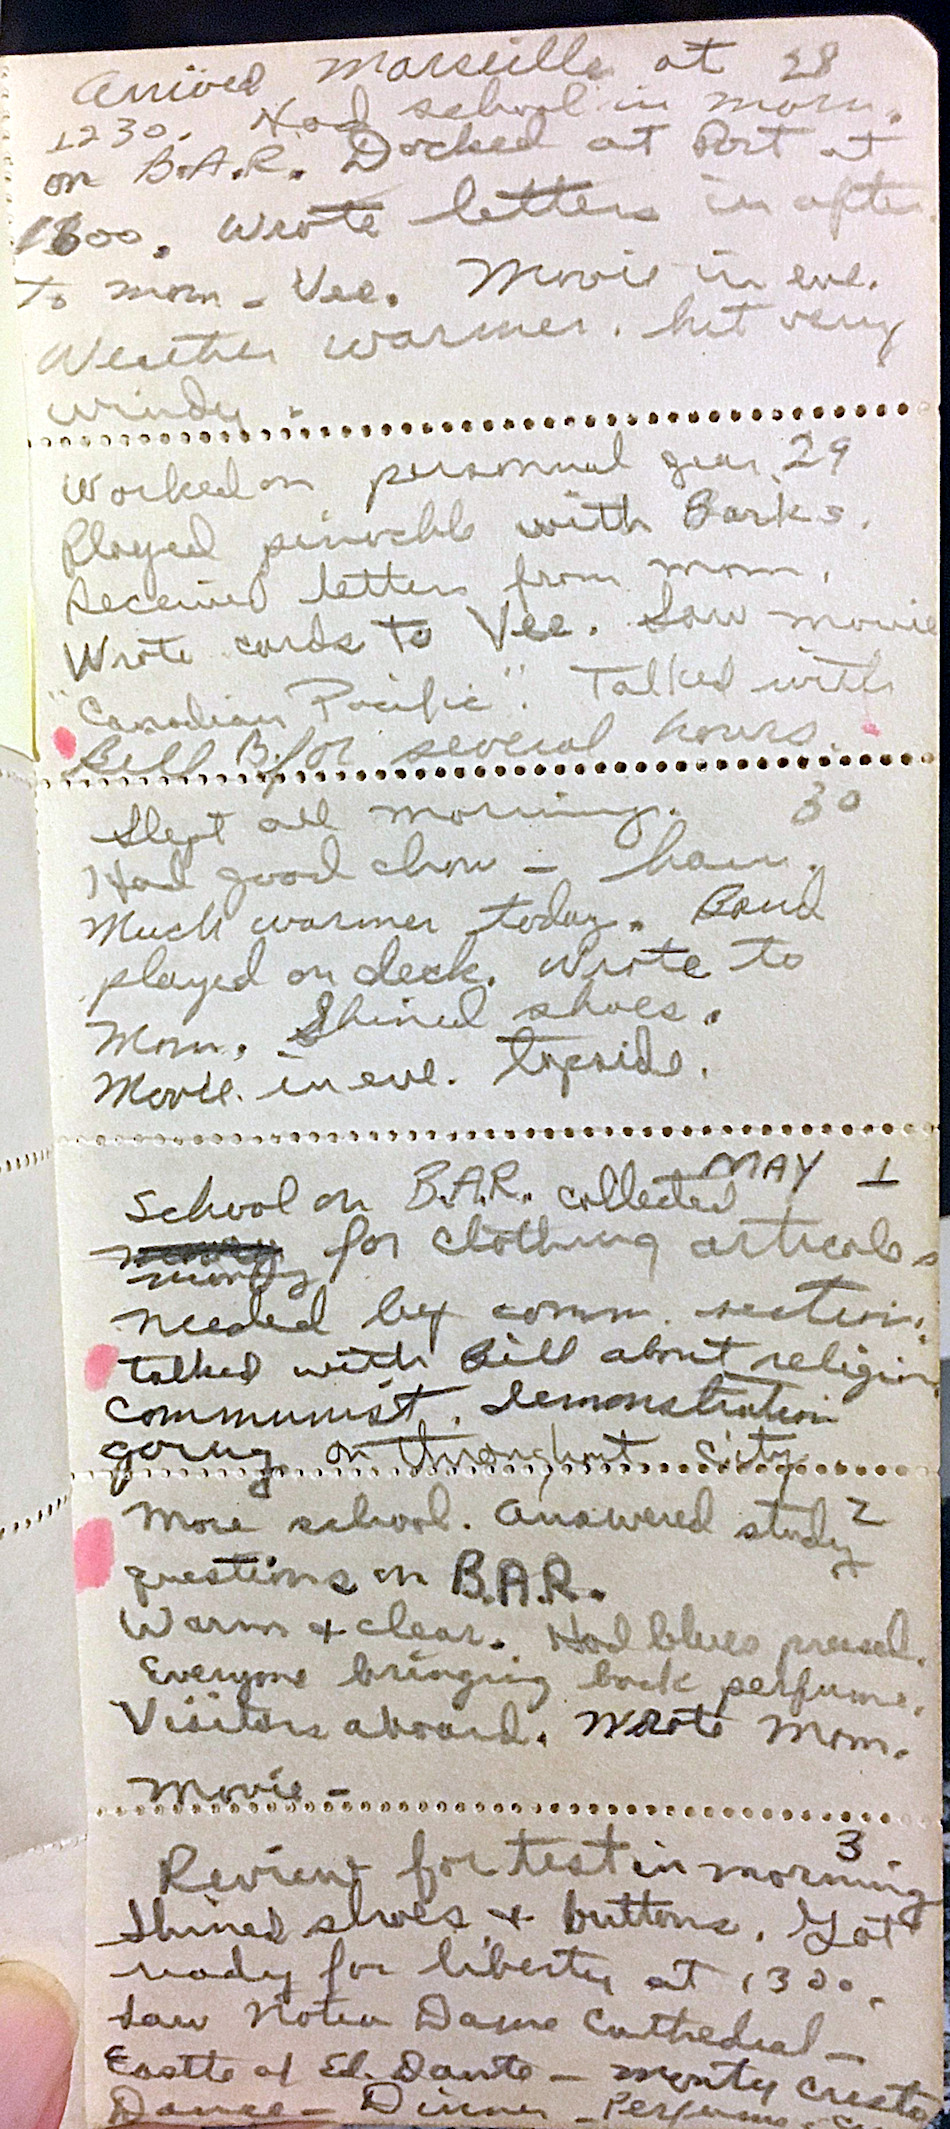 Arrived Marseille at 28
1230. Had school in morn.
on B.A.R. Docked at Port at
1800. Wrote letters in after.
To mom - Vee. Movie in eve.
Weather warmer. but very
windy.
Worked on personnal gear 29
Played pinochle with Barks.
Received letters from mom.
Wrote cards to Vee. Saw movie
"Canadian Pacific". Talked with
Bill B. for several hours.
Slept all morning. 30
Had good chow - ham.
Much warmer today. Band
played on deck. Wrote to
Mom. Shined shoes.
Movie in eve. topside.
MAY 1
School on B.A.R. collected
for clothing articals
money
needed by comm. section.
talked with Bill about religion
Communist. demonstration
going on throughout city
More school. Answered study 2
questions on B.A.R.
Warm + clear. Had blues pressed.
Everyone bringing back perfume.
Visitors aboard. Wrote Mom.
Movie -
3
Review for test in morning
Shined shoes + buttons. Got
ready for liberty at 1300.
Saw Noter Dame Cathedral -
Castle of Ed. Dante - monty Cresto
Dance - Dinner - Perfume